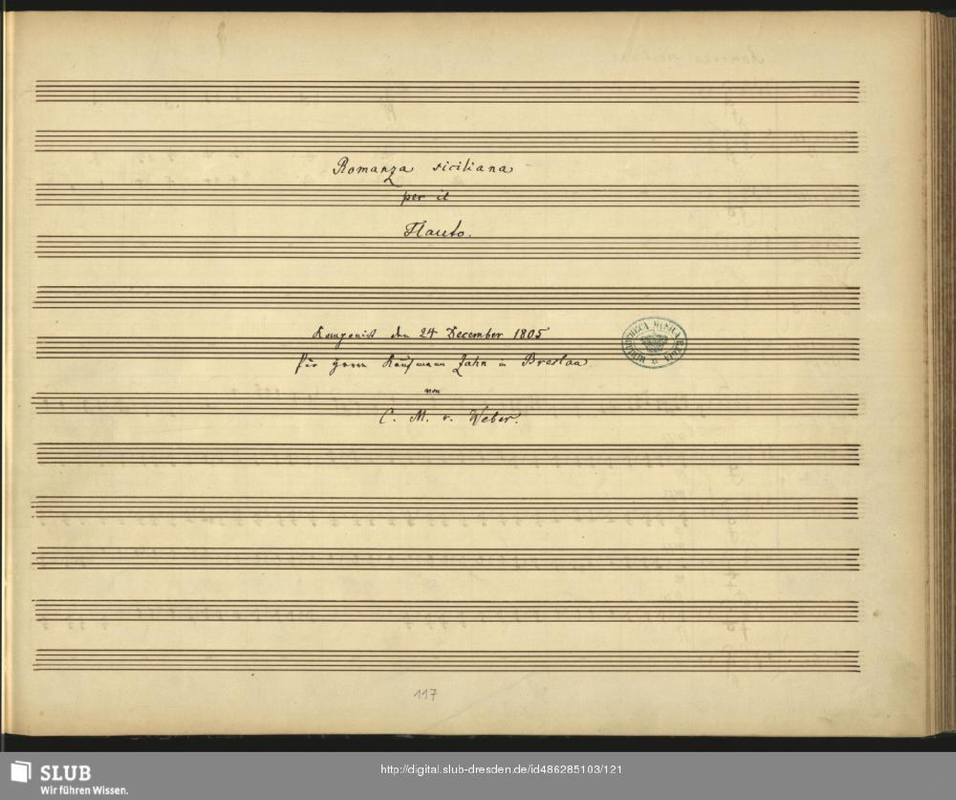 Romanza siciliana
per il
Flauto.
Komponirt den 24 December 1805
für Herrn Kaufmann Zahn in Breslau
von
C. M. v. Weber.
117
SLUB
Wir führen Wissen.
http://digital.slub-dresden.de/id486285103/121